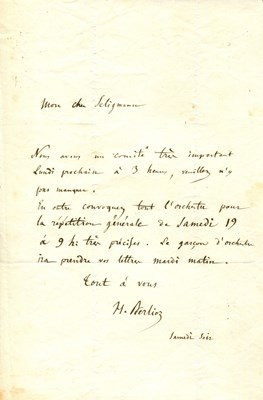 Mon cher Seligmann
Nous avons un comité très important
Lundi prochain à 3 heures, veuillez n'y
pas manquer.
En outre convoquez tout l'orchestre pour
la répétition générale de Samedi 19
à 9 h: très précises. Le garçon d'orchestre
ira prendre vos lettres mardi matin.
Tout à vous
H. Berlioz
Samedi Soir